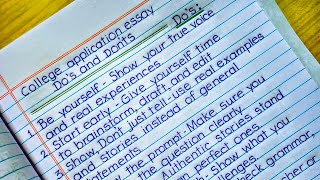 College application essay
Do's and Don'ts
Do's:
1. Be yourself - Show your true voice
and real experiences
2. Start early - Give yourself time
to brainstorm, draft, and edit
3. Show, Don't just tell use real examples
and stories instead of general
statements
the prompt. Make sure you
the question clearly
Authentic stories stand
perfect ones.
Show what you
challenges
check grammar,